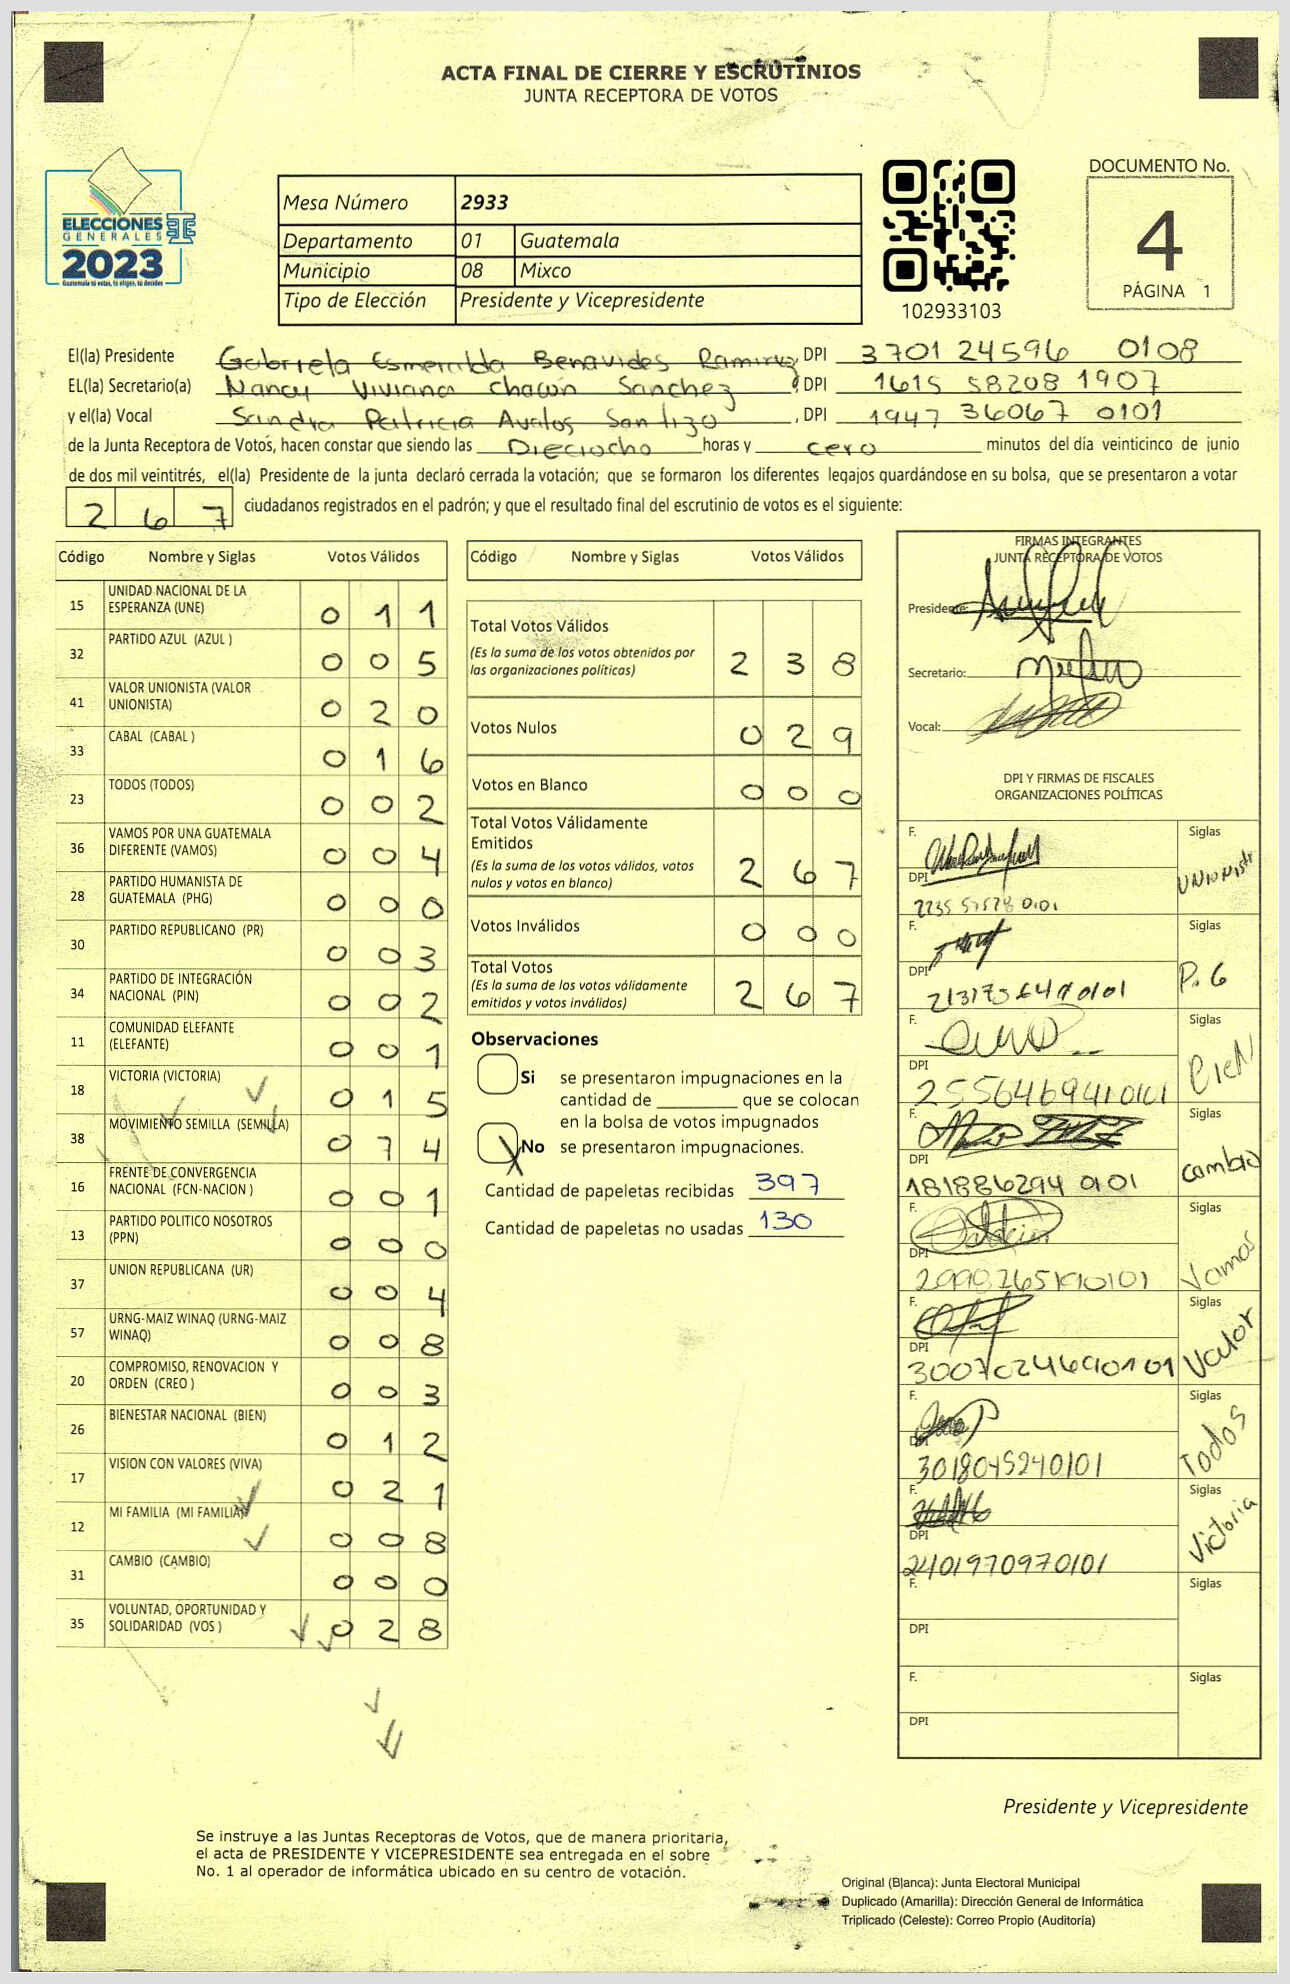 ACTA FINAL DE CIERRE Y ESCRUTINIOS
JUNTA RECEPTORA DE VOTOS
ELECCIONES
GENERALES
2023
Guatemala tú votas, tú eliges, tú decides
Mesa Número 2933
Departamento 01 Guatemala
Municipio 08 Mixco
Tipo de Elección Presidente y Vicepresidente
102933103
DOCUMENTO No.
4
PÁGINA 1
El(la) Presidente Gabriela Esmeralda Benavides Ramirez, DPI 3701 24596 0108
EL(la) Secretario(a) Nancy Viviana Chacón Sanchez, DPI 1615 58208 1907
y el(la) Vocal Sandra Patricia Avalos Santizo, DPI 1947 36067 0101
de la Junta Receptora de Votos, hacen constar que siendo las Dieciocho horas y cero minutos del día veinticinco de junio
de dos mil veintitrés, el(la) Presidente de la junta declaró cerrada la votación; que se formaron los diferentes legajos quardándose en su bolsa, que se presentaron a votar
267 ciudadanos registrados en el padrón; y que el resultado final del escrutinio de votos es el siguiente:
Código Nombre y Siglas Votos Válidos
15 UNIDAD NACIONAL DE LA ESPERANZA (UNE) 0 1 1
32 PARTIDO AZUL (AZUL ) 0 0 5
41 VALOR UNIONISTA (VALOR UNIONISTA) 0 2 0
33 CABAL (CABAL ) 0 1 6
23 TODOS (TODOS) 0 0 2
36 VAMOS POR UNA GUATEMALA DIFERENTE (VAMOS) 0 0 4
28 PARTIDO HUMANISTA DE GUATEMALA (PHG) 0 0 0
30 PARTIDO REPUBLICANO (PR) 0 0 3
34 PARTIDO DE INTEGRACIÓN NACIONAL (PIN) 0 0 2
11 COMUNIDAD ELEFANTE (ELEFANTE) 0 0 1
18 VICTORIA (VICTORIA) 0 1 5
38 MOVIMIENTO SEMILLA (SEMILLA) 0 7 4
16 FRENTE DE CONVERGENCIA NACIONAL (FCN-NACION ) 0 0 1
13 PARTIDO POLITICO NOSOTROS (PPN) 0 0 0
37 UNION REPUBLICANA (UR) 0 0 4
57 URNG-MAIZ WINAQ (URNG-MAIZ WINAQ) 0 0 8
20 COMPROMISO, RENOVACION Y ORDEN (CREO ) 0 0 3
26 BIENESTAR NACIONAL (BIEN) 0 1 2
17 VISION CON VALORES (VIVA) 0 2 1
12 MI FAMILIA (MI FAMILIA) 0 0 8
31 CAMBIO (CAMBIO) 0 0 0
35 VOLUNTAD, OPORTUNIDAD Y SOLIDARIDAD (VOS ) 0 2 8
Código Nombre y Siglas Votos Válidos
Total Votos Válidos
(Es la suma de los votos obtenidos por las organizaciones políticas) 2 3 8
Votos Nulos 0 2 9
Votos en Blanco 0 0 0
Total Votos Válidamente Emitidos
(Es la suma de los votos válidos, votos nulos y votos en blanco) 2 6 7
Votos Inválidos 0 0 0
Total Votos
(Es la suma de los votos válidamente emitidos y votos inválidos) 2 6 7
Observaciones
Si se presentaron impugnaciones en la
cantidad de ________ que se colocan
en la bolsa de votos impugnados
X No se presentaron impugnaciones.
Cantidad de papeletas recibidas 397
Cantidad de papeletas no usadas 130
FIRMAS INTEGRANTES
JUNTA RECEPTORA DE VOTOS
Presidente:
Secretario:
Vocal:
DPI Y FIRMAS DE FISCALES
ORGANIZACIONES POLÍTICAS
F. Siglas Unionista
DPI
F. Siglas P.G
DPI
F. Siglas Bien
DPI 2556469410101
F. Siglas cambio
DPI 181886294 0101
F. Siglas Vamos
DPI
F. Siglas Valor
DPI 3007024690101
F. Siglas Todos
DPI 3018045240101
F. Siglas Victoria
DPI 2401970970101
F. Siglas
DPI
F. Siglas
DPI
Presidente y Vicepresidente
Se instruye a las Juntas Receptoras de Votos, que de manera prioritaria,
el acta de PRESIDENTE Y VICEPRESIDENTE sea entregada en el sobre
No. 1 al operador de informática ubicado en su centro de votación.
Original (Blanca): Junta Electoral Municipal
Duplicado (Amarilla): Dirección General de Informática
Triplicado (Celeste): Correo Propio (Auditoría)